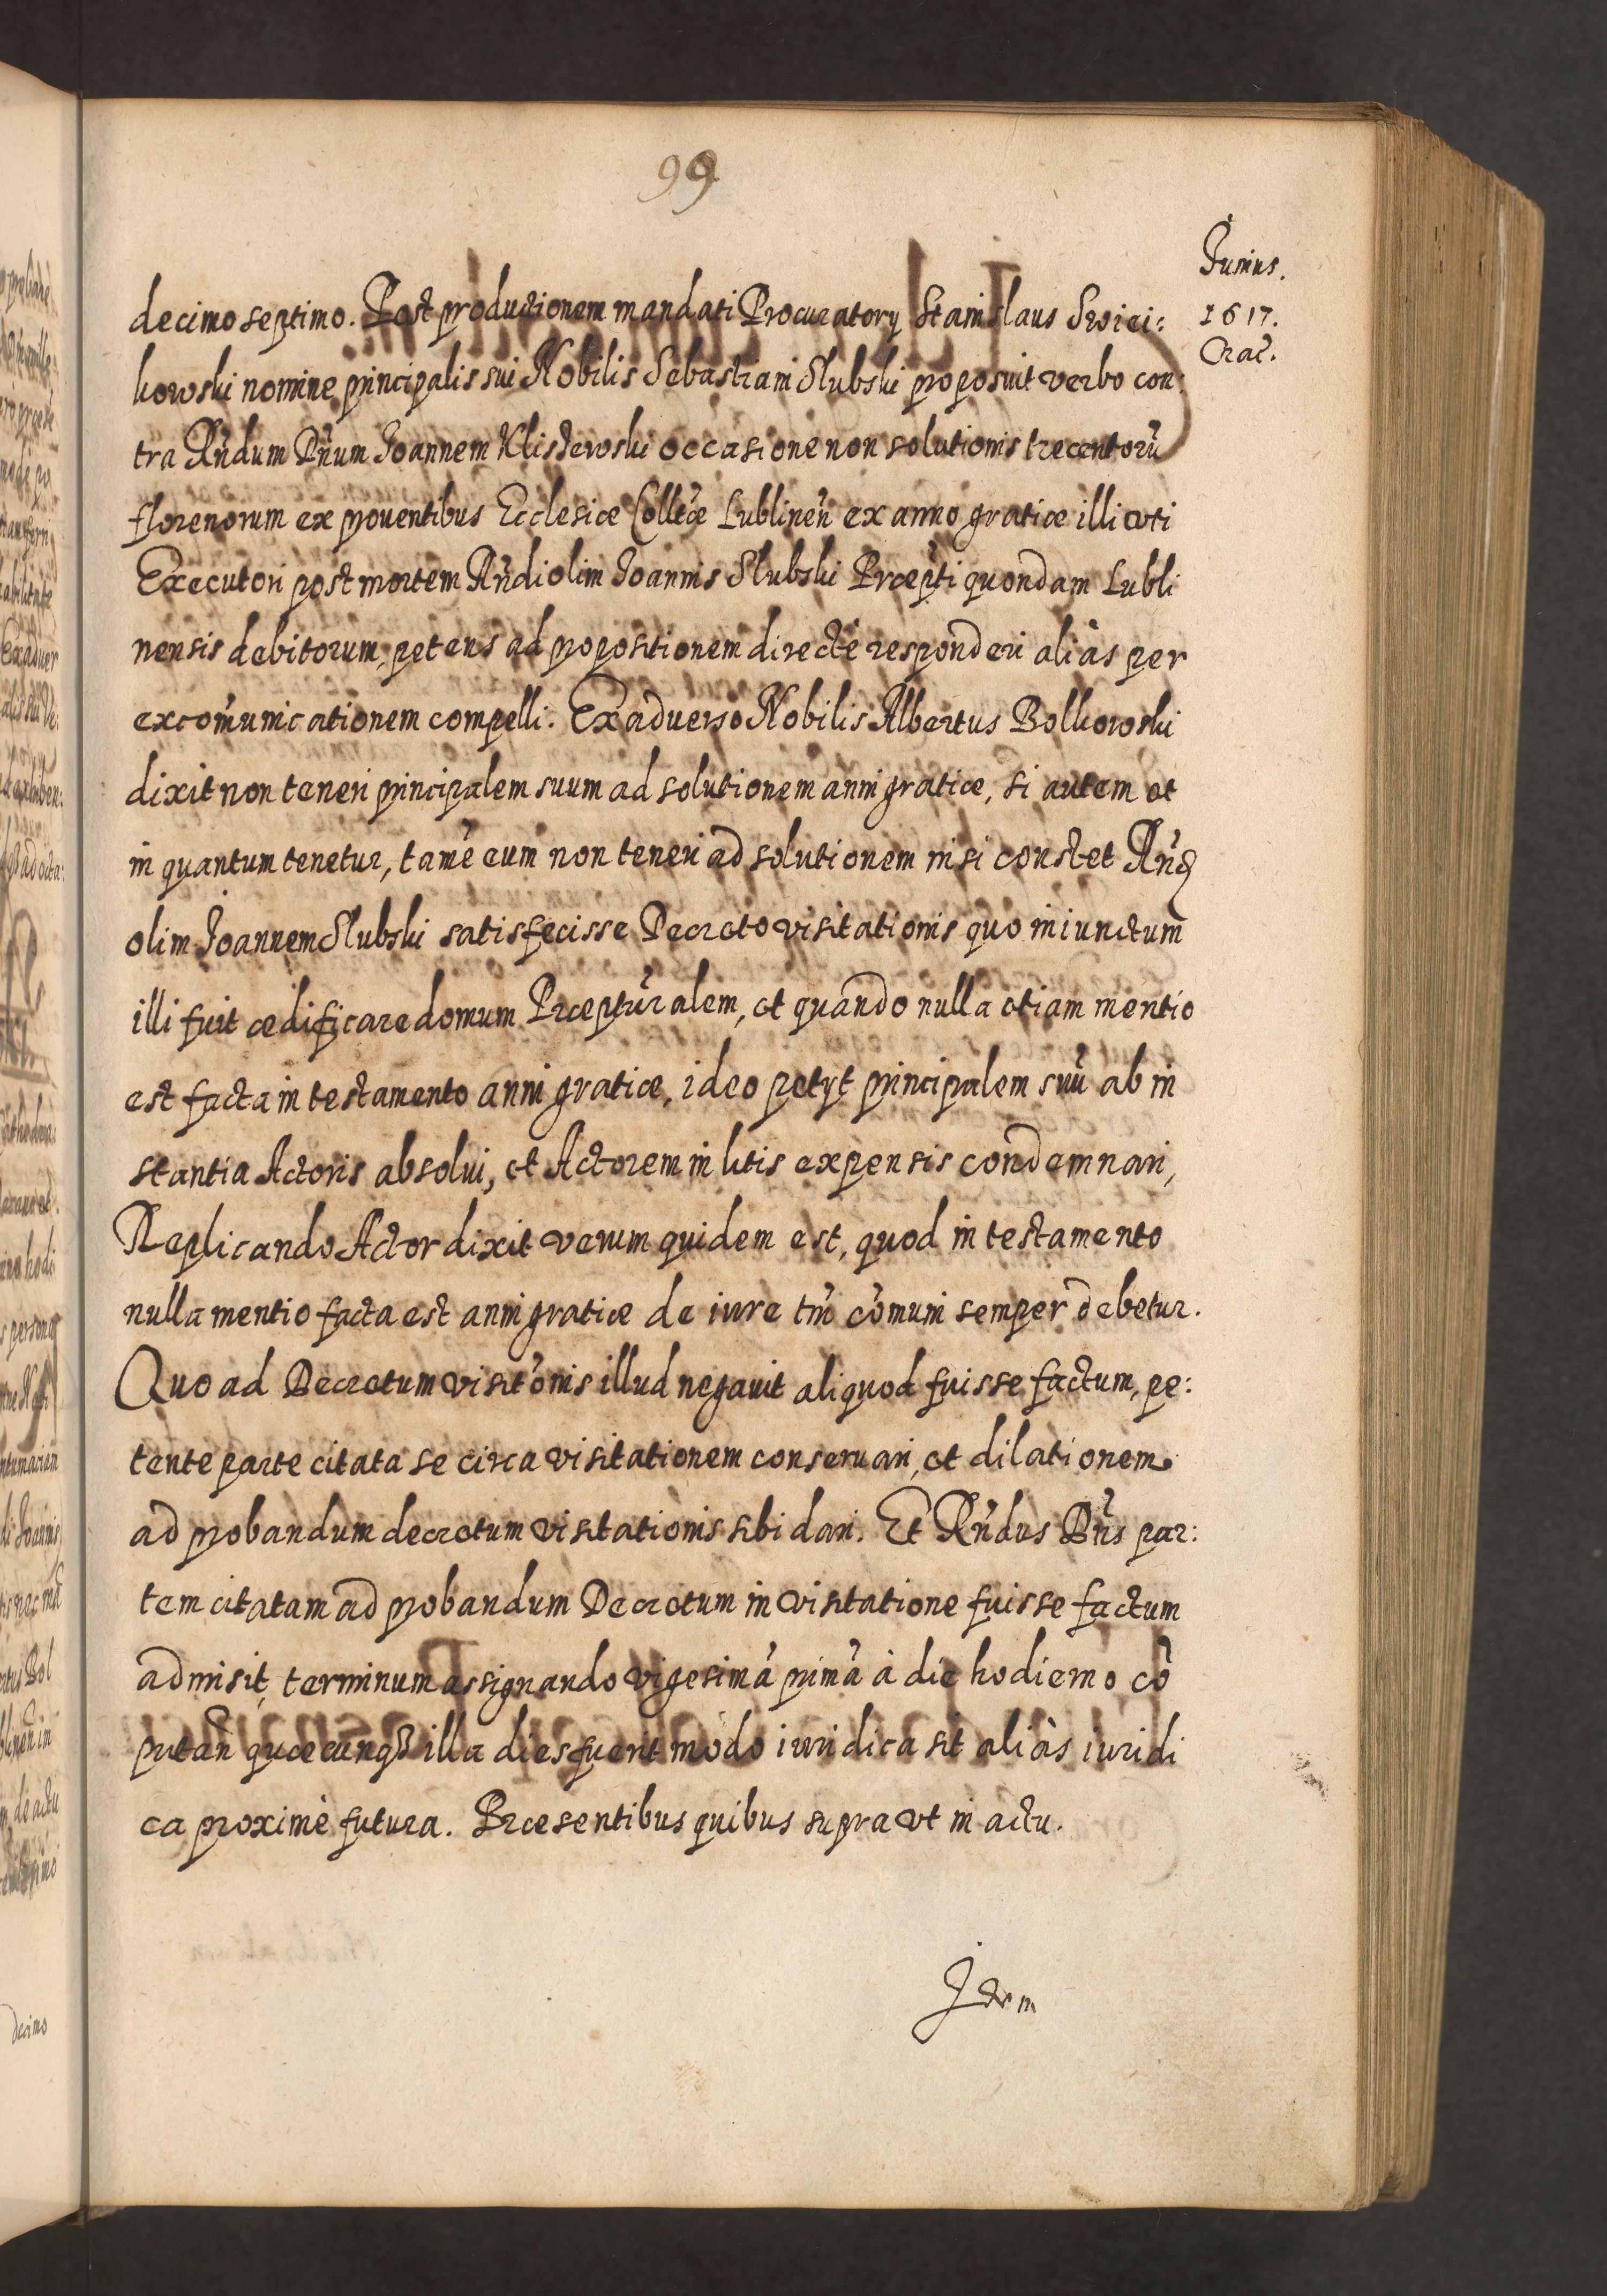 99
Junius.
1617.
Crac̃.
decimo septimo. Post productionem mandati Procuratorij Stanislaus Swici=
kowski nomine principalis sui Nobilis Sebastiani Slubski proposuit verbo con:
tra Rñdum Dñum Joannem Klistewski occasione non solutionis trecentorũ
florenorum ex prouentibus Ecclesiæ Colltæ̃ Lublineñ ex anno gratiæ illi vti
Executori post mortem Rñdi olim Joannis Slubski Præpti quondam Lubli
nensis debitorum, petens ad propositionem directè responderi aliàs per
excom̃unicationem compelli. Ex aduerso Nobilis Albertus Bolkowski
dixit non teneri principalem suum ad solutionem anni gratiæ, si autem et
in quantum tenetur, tamẽ eum non teneri ad solutionem nisi constet Rñd
olim Joannem Slubski satisfecisse Decreto visitationis quo iniunctum
illi fuit ædificare domum Præptũralem, et quando nulla etiam mentio
est facta in testamento anni gratiæ, ideo petijt principalem suũ ab in
stantia Actoris absolui, et Actorem in litis expensis condemnari,
Replicando Actor dixit verum quidem est, quod in testamento
nulla mentio facta est anni gratiæ de iure tm̃ cõmuni semper debetur.
Quo ad Decretum visitõnis illud negauit aliquod fuisse factum, pe:
tente parte citata se circa visitationem conseruari, et dilationem
ad probandum decretum visitationis sibi dari. Et Rñdus Dñs par:
tem citatam ad probandum Decretum in visitatione fuisse factum
admisit, terminum assignando vigesimã primã à die hodierno cõ
putañ quæcunqʒ illa dies fuerit modo iuridica sit aliàs iuridi
ca proximè futura. Præsentibus quibus supra vt in actu.
Idem